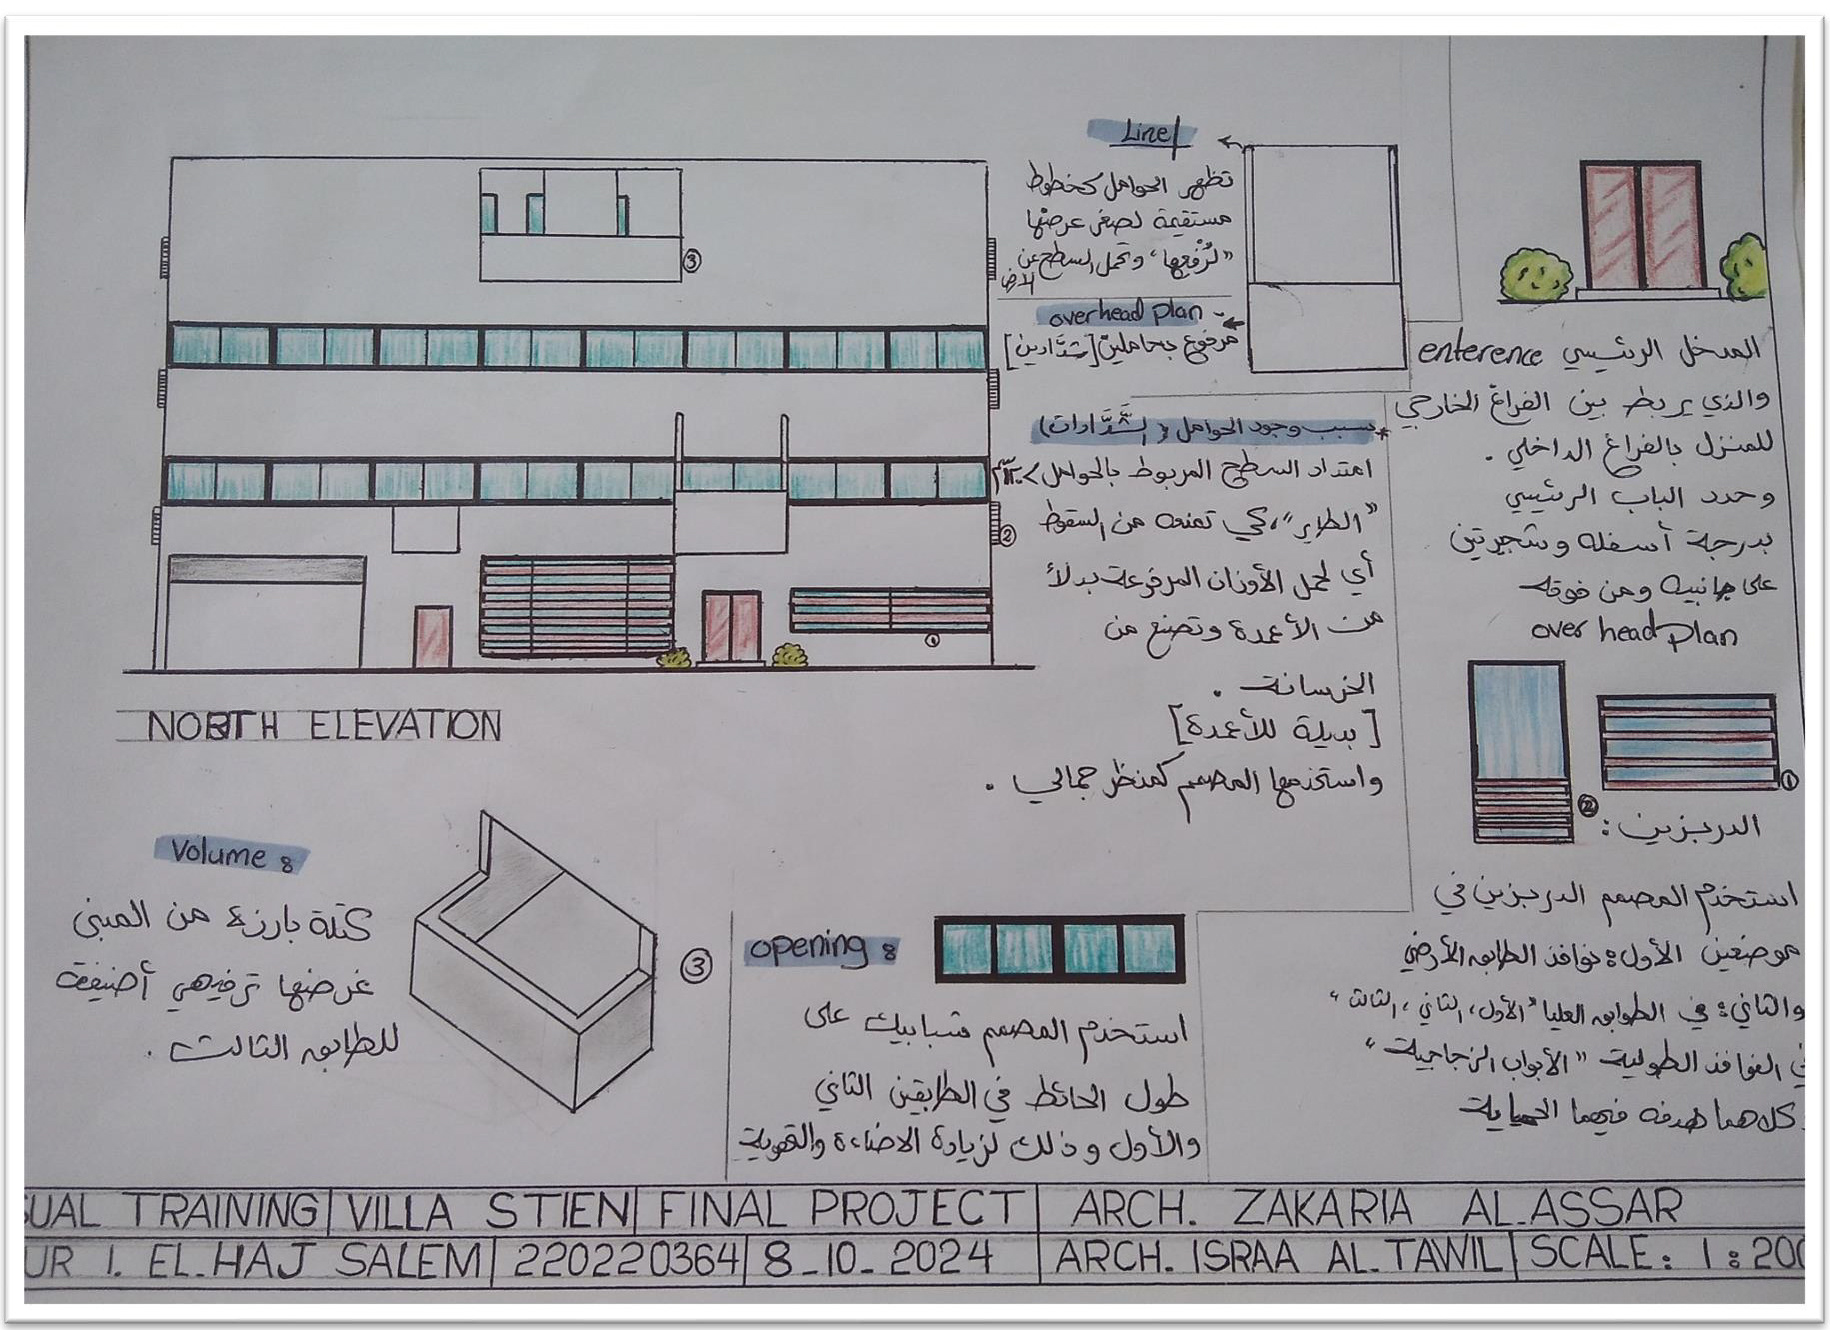 Line
تظهر الحوامل كخطوط
مستقيمة لصغر عرضها
"لرُفْعِها"، وتحمل السطح عن
الارض
overhead plan -
مرفوع بحاملين [شدَّادين]
* سبب وجود الحوامل (الشَّدَّادات)
امتداد السطح المربوط بالحوامل >
"الطاير"، كي تمنعه من السقوط
أي لحمل الأوزان المرفوعة بدلاً
من الأعمدة وتصنع من
الخرسانة .
[بديلة للأعمدة]
واستخدمها المصمم كمنظر جمالي .
المدخل الرئيسي enterence
والذي يربط بين الفراغ الخارجي
للمنزل بالفراغ الداخلي .
وحدد الباب الرئيسي
بدرجة أسفله وشجرتين
على جانبيه ومن فوقه
over head plan
③
②
①
NORTH ELEVATION
①
②
الدربزين :
استخدم المصمم الدربزين في
موضعين الأول: نوافذ الطابق الأرضي
والثاني: في الطوابق العليا "الأول، الثاني، الثالث"
في النوافذ الطولية "الأبواب الزجاجية"
كلاهما هدفه فيهما الحماية
Volume :
كتلة بارزة من المبنى
غرضها ترفيهي أضيفة
للطابق الثالث .
③
opening :
استخدم المصمم شبابيك على
طول الحائط في الطابقين الثاني
والأول وذلك لزيادة الاضاءة والتهوية
UAL TRAINING VILLA STIEN FINAL PROJECT ARCH. ZAKARIA AL.ASSAR
UR I. EL-HAJ SALEM 220220364 8-10-2024 ARCH. ISRAA AL-TAWIL SCALE: 1:200